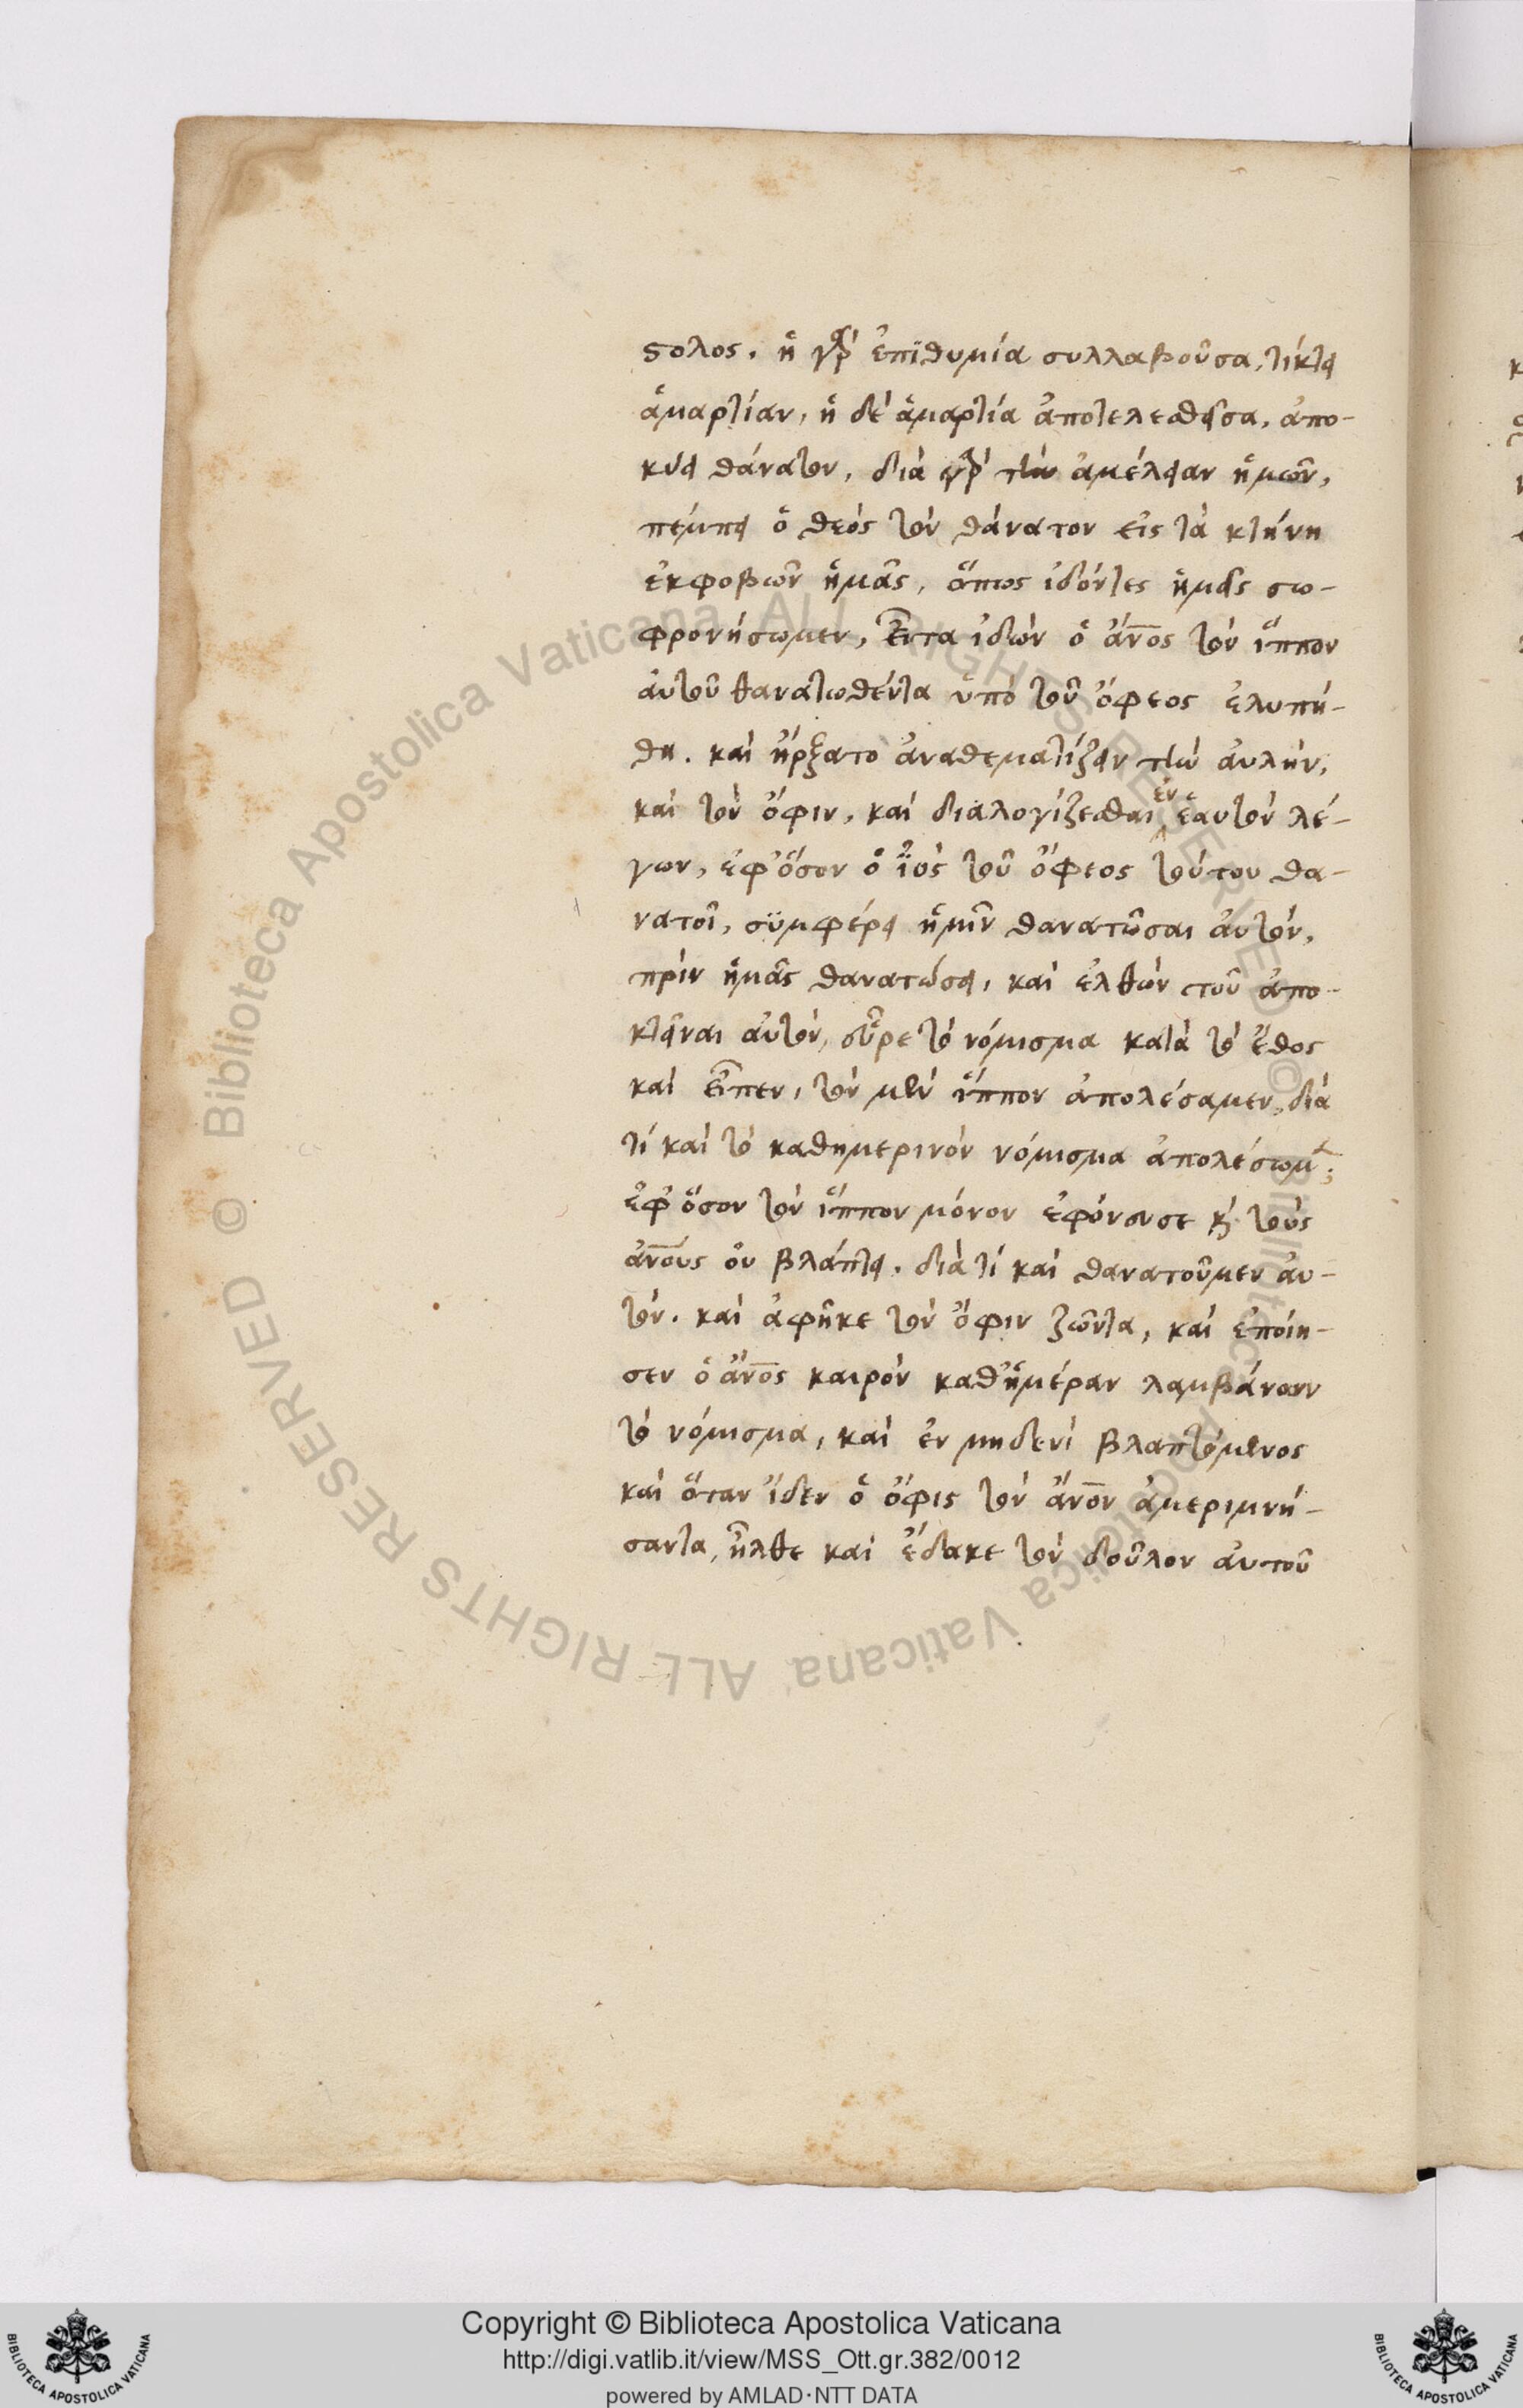 στολος. ἡ γὰρ ἐπϊθυμία συλλαβοῦσα, τίκτει
ἁμαρτίαν, ἡ δὲ ἁμαρτία ἀποτελεσθεῖσα, ἀπο-
κύει θάνατον, διὰ γὰρ τὴν ἀμέλειαν ἡμῶν,
πέμπει ὁ θεός τὸν θάνατον εἰς τὰ κτήνη
ἐκφοβῶν ἡμᾶς, ὅπως ἰδόντες ἡμεῖς σω-
φρονήσωμεν, Εἶτα ἰδὼν ὁ ἄνος τὸν ἵππον
ἀυτοῦ θανατωθέντα ὑπὸ τοῦ ὄφεος ἐλυπή-
θη. καὶ ἤρξατο ἀναθεματίζειν τὴν ἀυλὴν,
καὶ τὸν ὄφιν, καὶ διαλογίζεσθαι ἐν ἑαυτὸν λέ-
γων, ἐφ' ὅσον ὁ ἰὸς τοῦ ὄφεος τούτου θα-
νατοῖ, σϋμφέρει ἡμῖν θανατῶσαι ἀυτὸν,
πρὶν ἡμᾶς θανατώσει, καὶ ἐλθὼν τοῦ ἀπο-
κτεῖναι ἀυτὸν, εὗρε τὸ νόμισμα κατὰ τὸ ἔθος
καὶ εἶπεν, τὸν μὲν ἵππον ἀπολέσαμεν, διὰ
τί καὶ τὸ καθημερινὸν νόμισμα ἀπολέσωμεν;
ἐφ' ὅσον τὸν ἵππον μόνον ἐφόνευσε κ τοὺς
ἀνους ὀυ βλάπτει. διὰ τί καὶ θανατοῦμεν ἀυ-
τὸν. καὶ ἀφῆκε τὸν ὄφιν ζῶντα, καὶ ἐποίη-
σεν ὁ ἄνος καιρὸν καθ' ἡμέραν λαμβάνων
τὸ νόμισμα, καὶ ἐν μηδενὶ βλαπτόμενος
καὶ ὅταν ἴδεν ὁ ὄφις τὸν ἄνον ἀμεριμνή-
σαντα, ἦλθε καὶ ἔδακε τὸν δοῦλον ἀυτοῦ
Copyright © Biblioteca Apostolica Vaticana
http://digi.vatlib.it/view/MSS_Ott.gr.382/0012
powered by AMLAD·NTT DATA